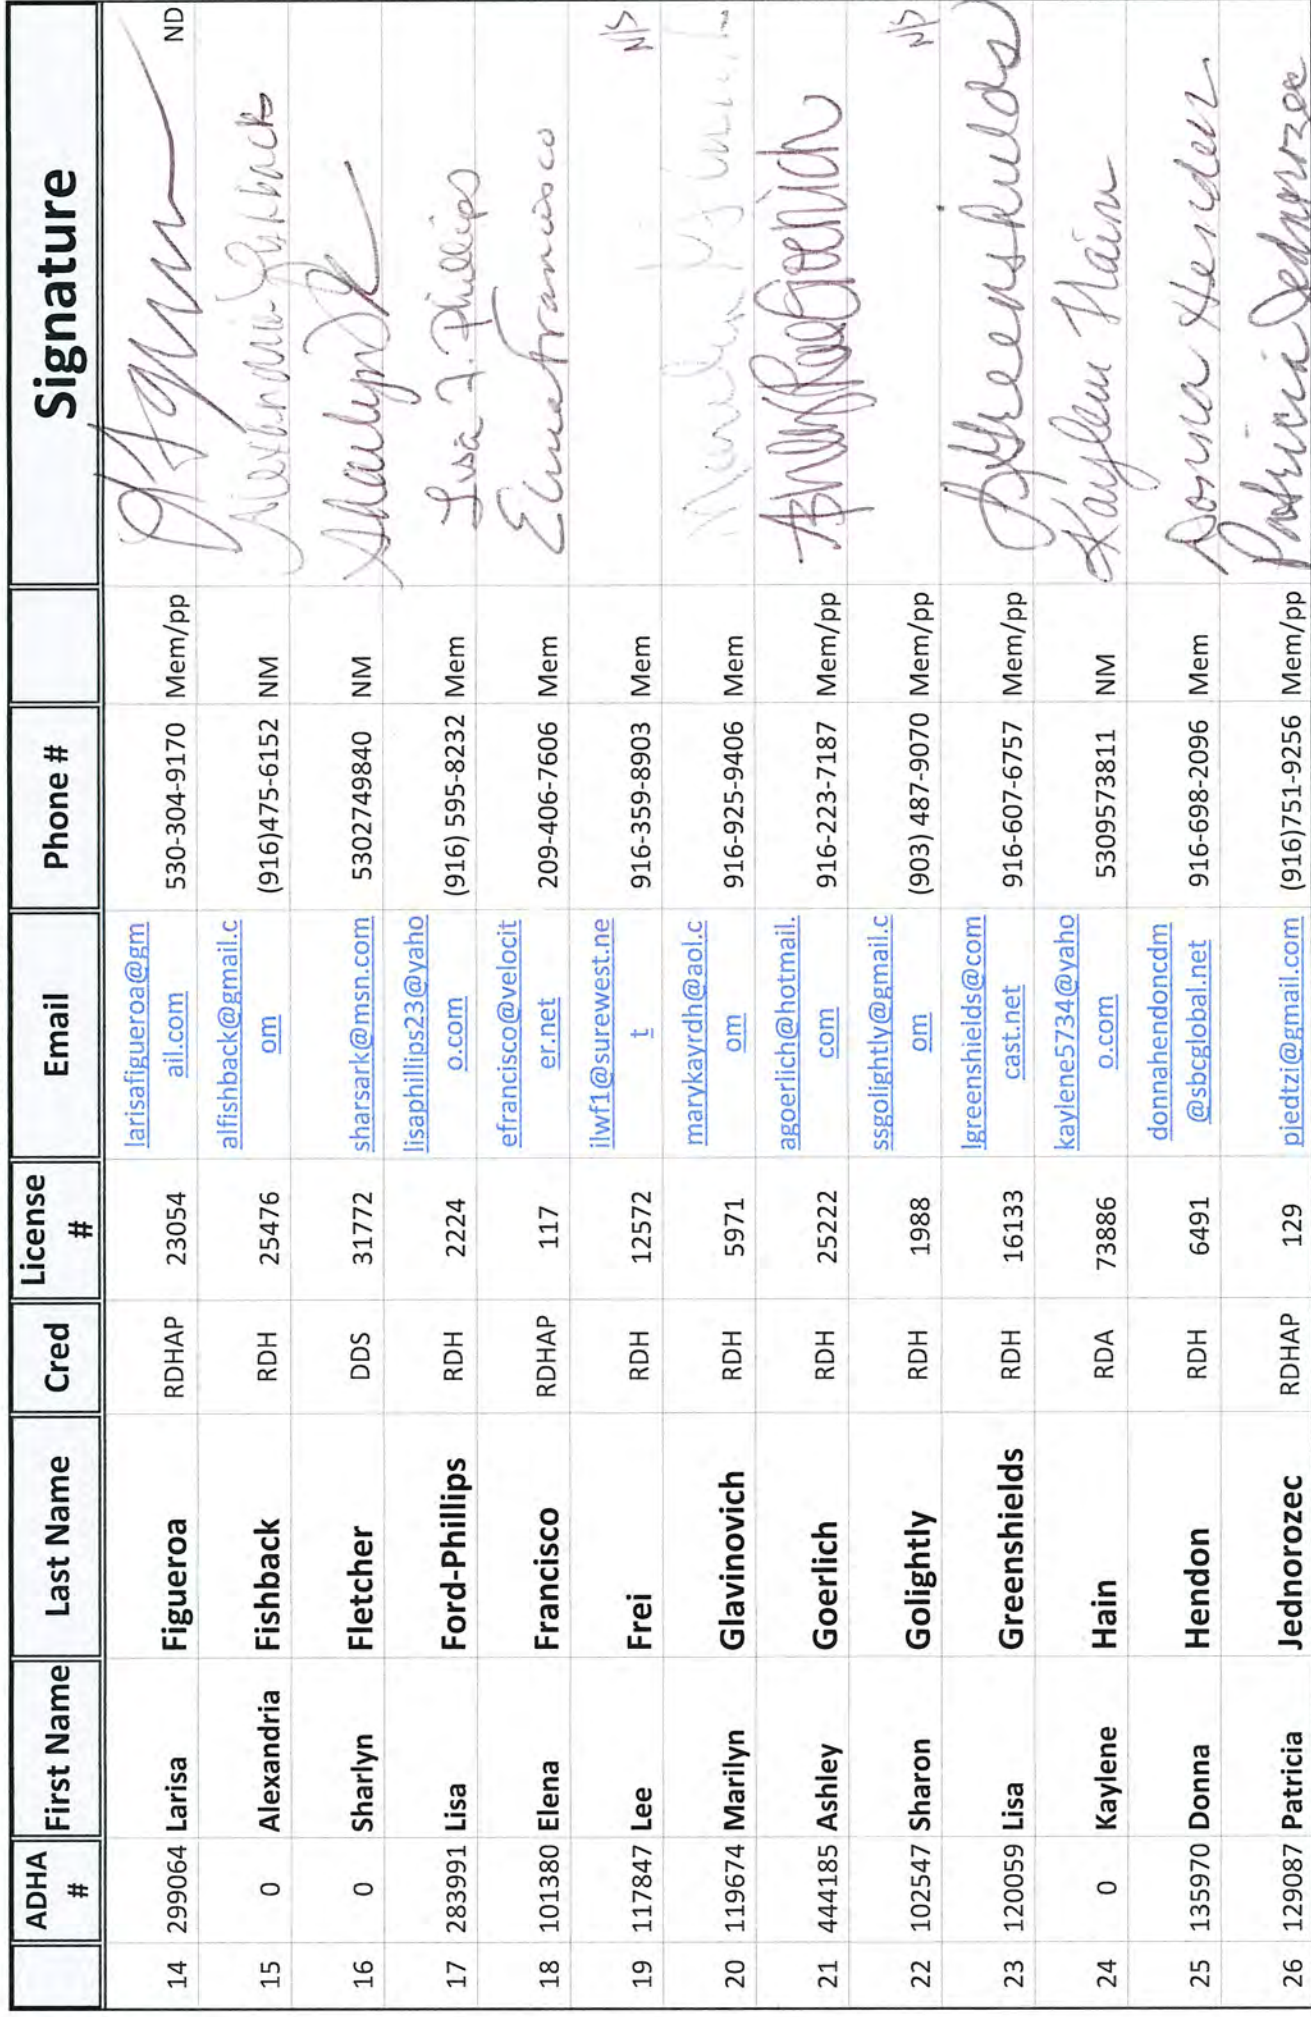 ADHA # First Name Last Name Cred License # Email Phone # Signature
14 299064 Larisa Figueroa RDHAP 23054 larisafigueroa@gm 530-304-9170 Mem/pp ND
ail.com
15 0 Alexandria Fishback RDH 25476 alfishback@gmail.c (916)475-6152 NM Alexandria Fishback
om
16 0 Sharlyn Fletcher DDS 31772 sharsark@msn.com 5302749840 NM Sharlyn
17 283991 Lisa Ford-Phillips RDH 2224 lisaphillips23@yaho (916) 595-8232 Mem Lisa F. Phillips
o.com
18 101380 Elena Francisco RDHAP 117 efrancisco@velocit 209-406-7606 Mem Elena Francisco
er.net
19 117847 Lee Frei RDH 12572 ilwf1@surewest.ne 916-359-8903 Mem N/S
t
20 119674 Marilyn Glavinovich RDH 5971 marykayrdh@aol.c 916-925-9406 Mem
om
21 444185 Ashley Goerlich RDH 25222 agoerlich@hotmail. 916-223-7187 Mem/pp Ashley Goerlich
com
22 102547 Sharon Golightly RDH 1988 ssgolightly@gmail.c (903) 487-9070 Mem/pp N/S
om
23 120059 Lisa Greenshields RDH 16133 lgreenshields@com 916-607-6757 Mem/pp Greenshields
cast.net
24 0 Kaylene Hain RDA 73886 kaylene5734@yaho 5309573811 NM Kaylene Hain
o.com
25 135970 Donna Hendon RDH 6491 donnahendoncdm 916-698-2096 Mem Donna Hendon
@sbcglobal.net
26 129087 Patricia Jednorozec RDHAP 129 pjedtzi@gmail.com (916)751-9256 Mem/pp Patricia Jednorozec